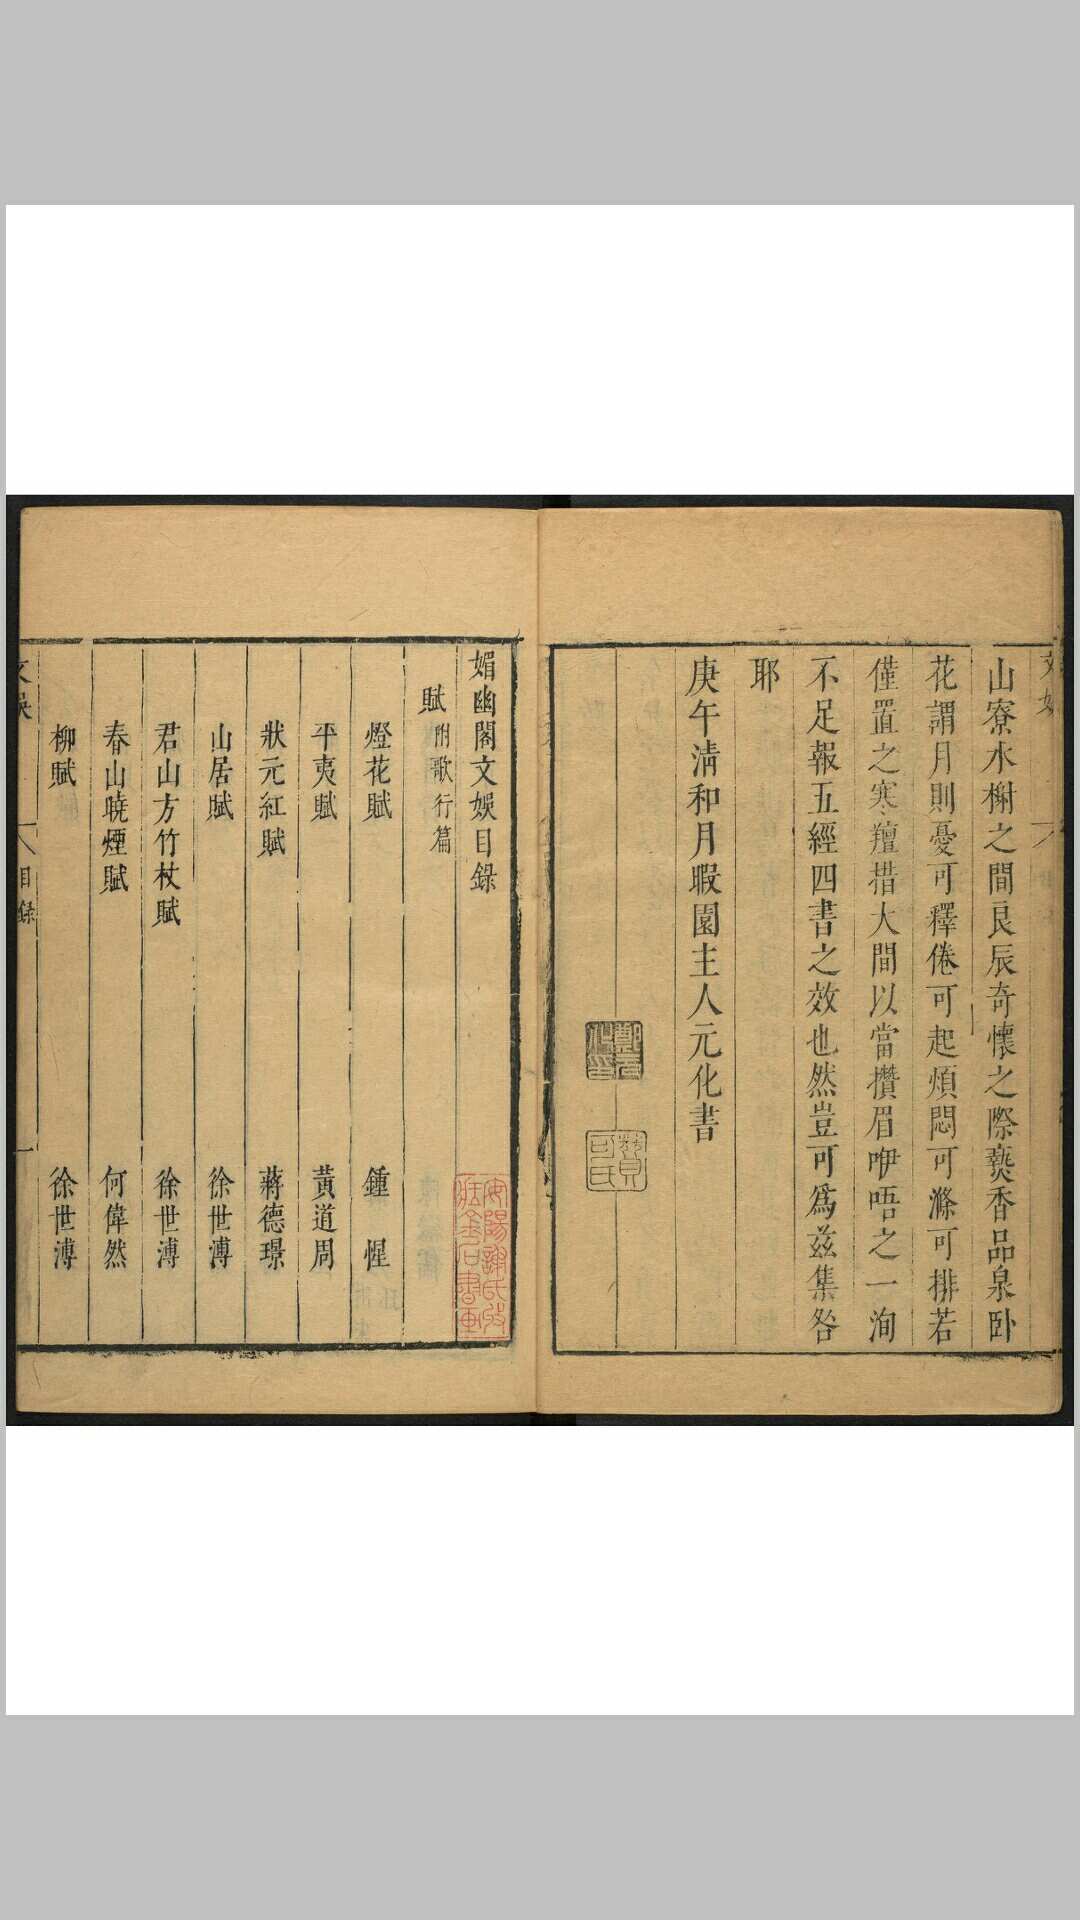 山寮水榭之間良辰奇懷之際爇香品泉卧
花謂月則憂可釋倦可起煩悶可滌可排若
僅置之寒羶措大間以當攢眉咿唔之一洵
不足報五經四書之效也然豈可為茲集咎
耶
庚午淸和月暇園主人元化書
鄭元化印
贊可氏
媚幽閣文娛目錄
賦 附歌行篇
燈花賦 鍾惺
平夷賦 黃道周
狀元紅賦 蔣德璟
山居賦 徐世溥
君山方竹杖賦 徐世溥
春山曉煙賦 何偉然
柳賦 徐世溥
文娛 目錄 一